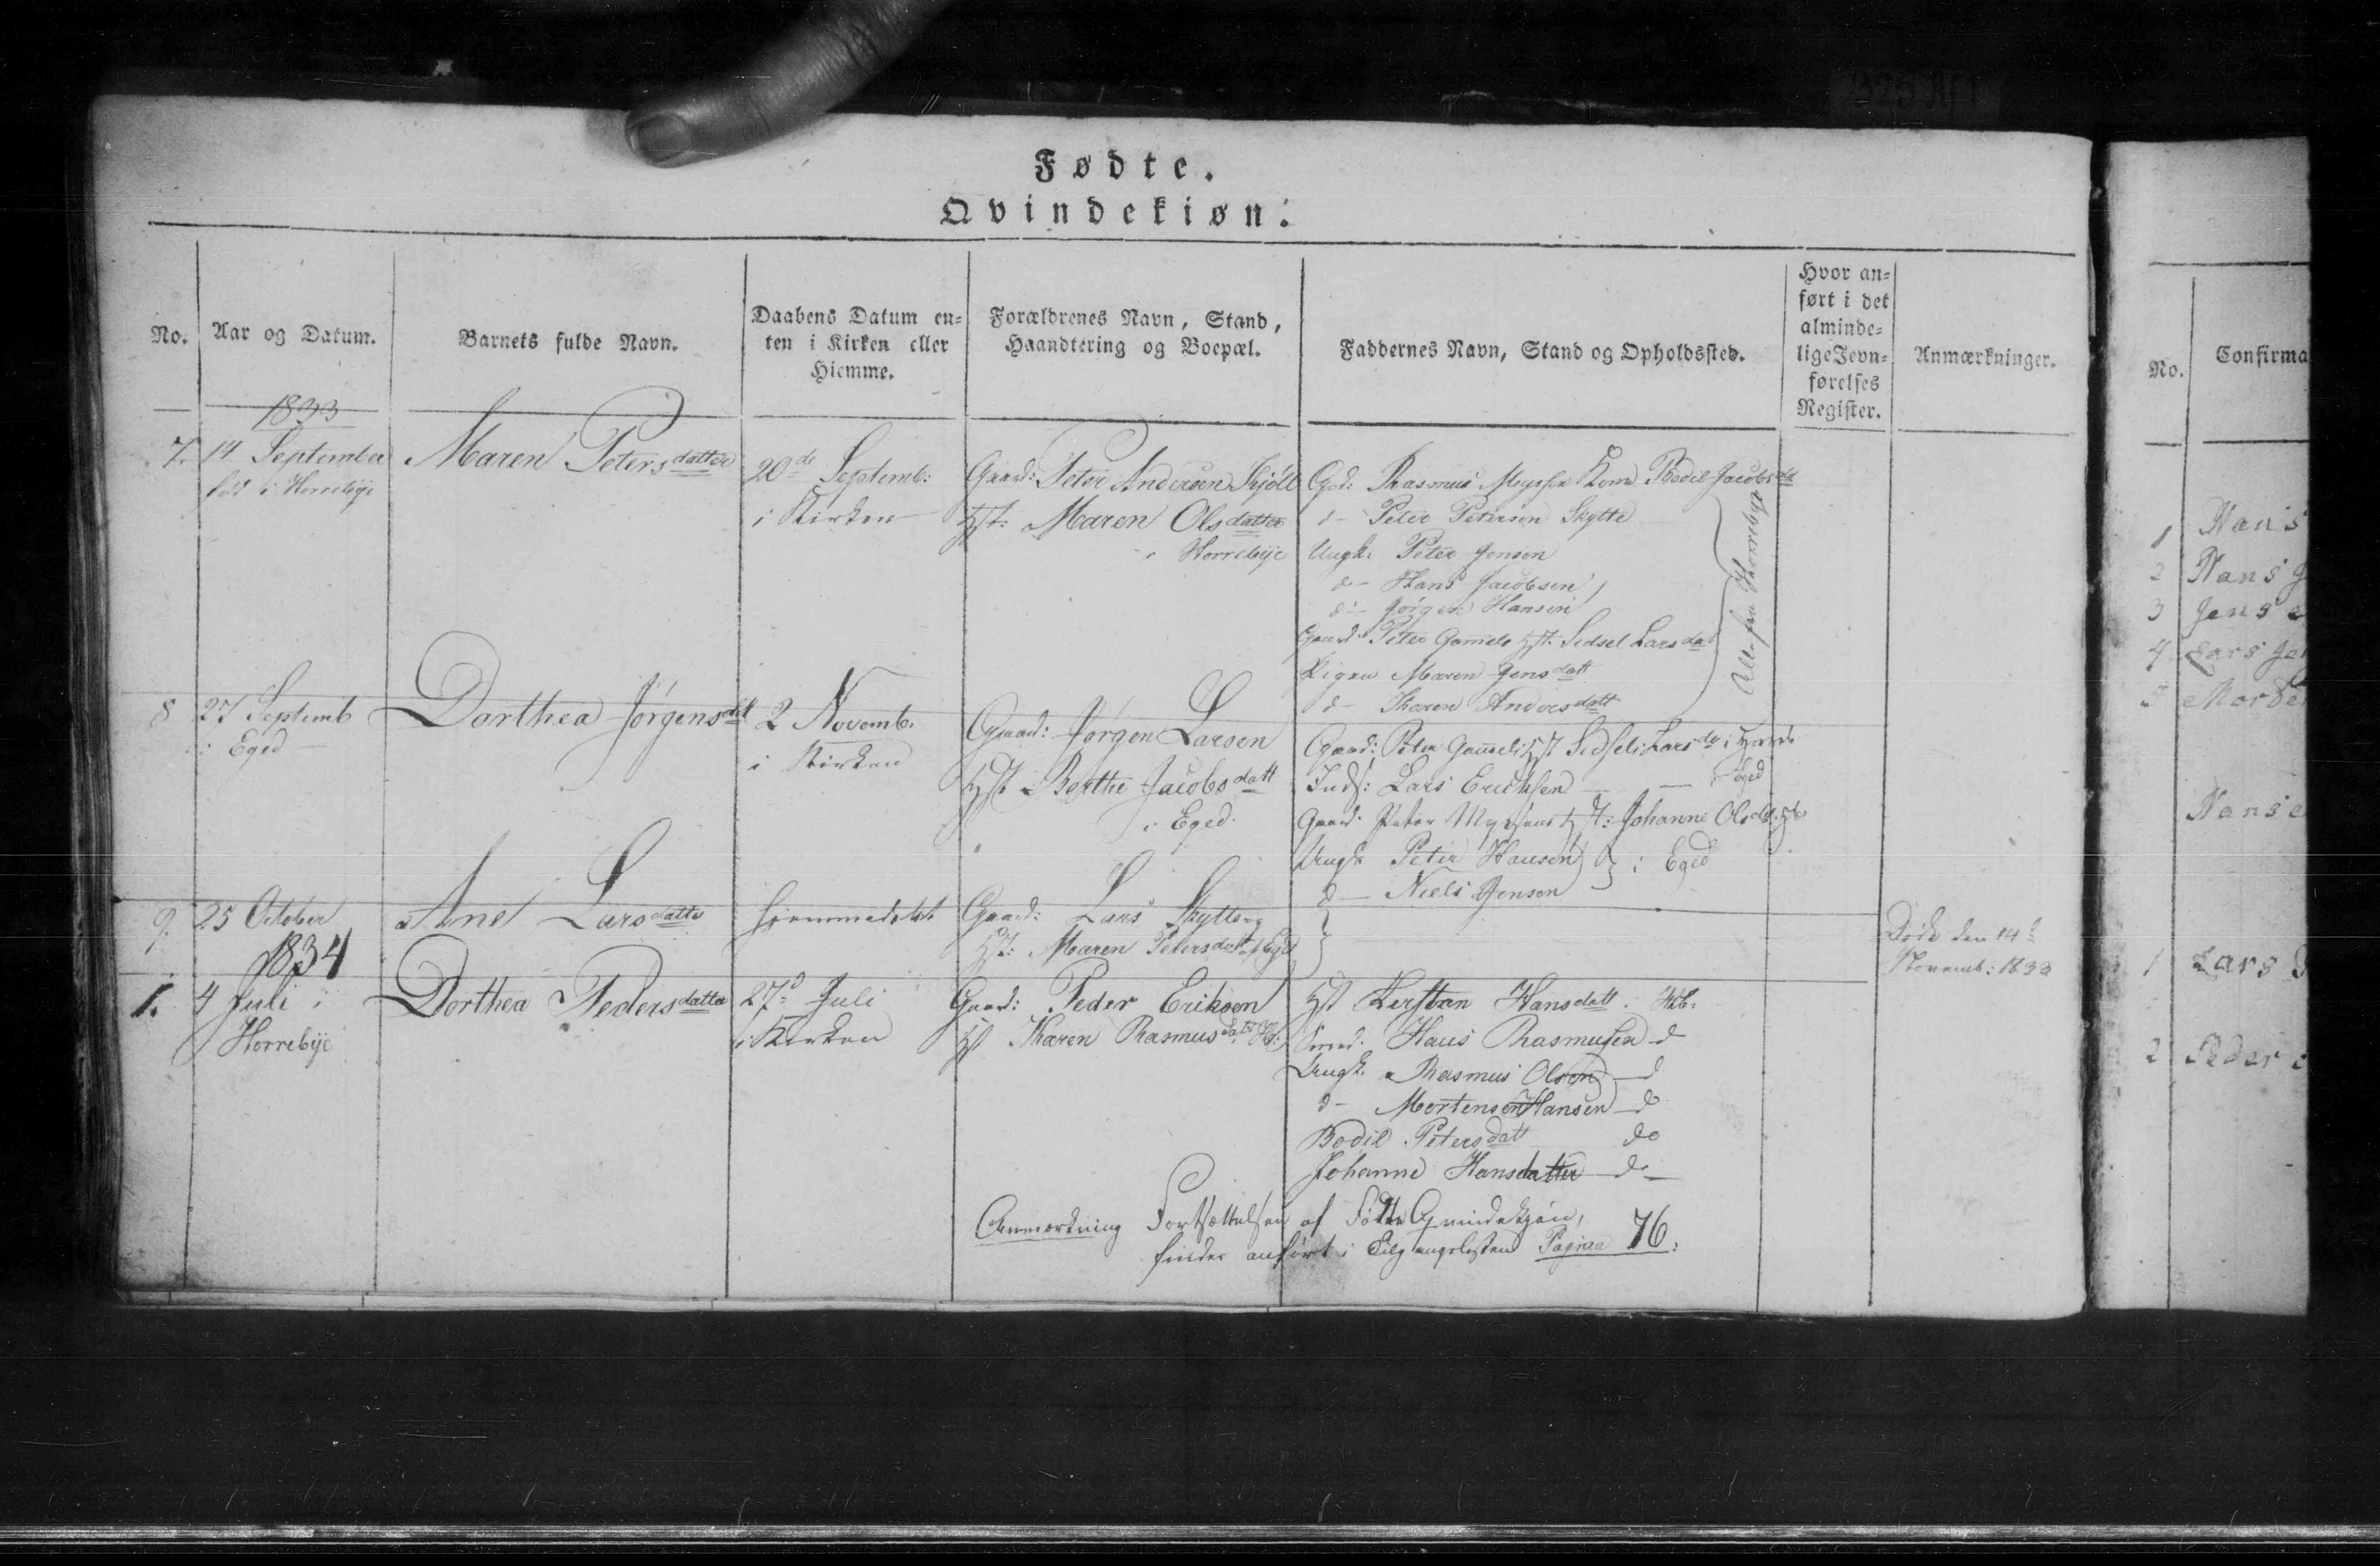 Fødte.
Qvindekiøn.
No.
Aar og Datum.
Barnets fulde Navn.
Daabens Datum en-
ten i Kirken eller
Hiemme.
Forældrenes Navn, Stand,
Haandtering og Boepæl.
Faddernes Navn, Stand og Opholdssted.
Hvor an-
ført i det
alminde-
lige Jevn-
førelses
Register.
Anmærkninger.
1833
7. 14 September
født i Horrebye
Maren Petersdatter
20de Septemb:
i Kirken
Gaard: Peter Andersen
Hst: Maren Olsdatter
i Horrebye
Rasmus Kone Bodil Jacobsdtt
d- Peter Petersen Skytte
Ungk: Peter Jensen
d- Hans Jacobsen
d- Jørgen Hansen
Gaard: Peter Hst. Sedsel Larsdat
Pigen Maren Jensdatt
d- Karen Andersdatt
Alle fra Horrebye
8 27 Septemb
i Eged
Dorthea Jørgensdtt
2 Novemb.
i Kirken
Gaard: Jørgen Larsen
Hst Berthe Jacobsdatt
i Eged.
Gaard: Peter Hst
Inds: Lars Eriksen Eged
Gaard: Peter Hst: Johanne Olsdtr
Ungk Peter Hansen } i Eged
d- Niels Jensen
9. 25 October
Ane Larsdatter
hjemmedøbt
Gaard: Lars Skytte
Hst: Maren Petersdatt Eged
Døde den 14d
Novemb: 1833
1834
1. 4 Juli i
Horrebye
Dorthea Pedersdatter
27d Juli
i Kirken
Gaard: Peder Eriksen
Hst Karen Rasmusdatt
Hst Kerstan Hansdatt
Smed. Hans Rasmusen d
Ungk. Rasmus Olsen d
d- Mortensen Hansen do
Bodil Petersdatt do
Johanne Hansdatter do
Anmærkning Fortsættelsen af Fødte Qvindekjøn,
findes anført i Pagina 76.
No.
Confirma
1 Hans
2 Hans J
3 Jens
4 Lars Je
5 Morte
Hans
1 Lars
2 Peder